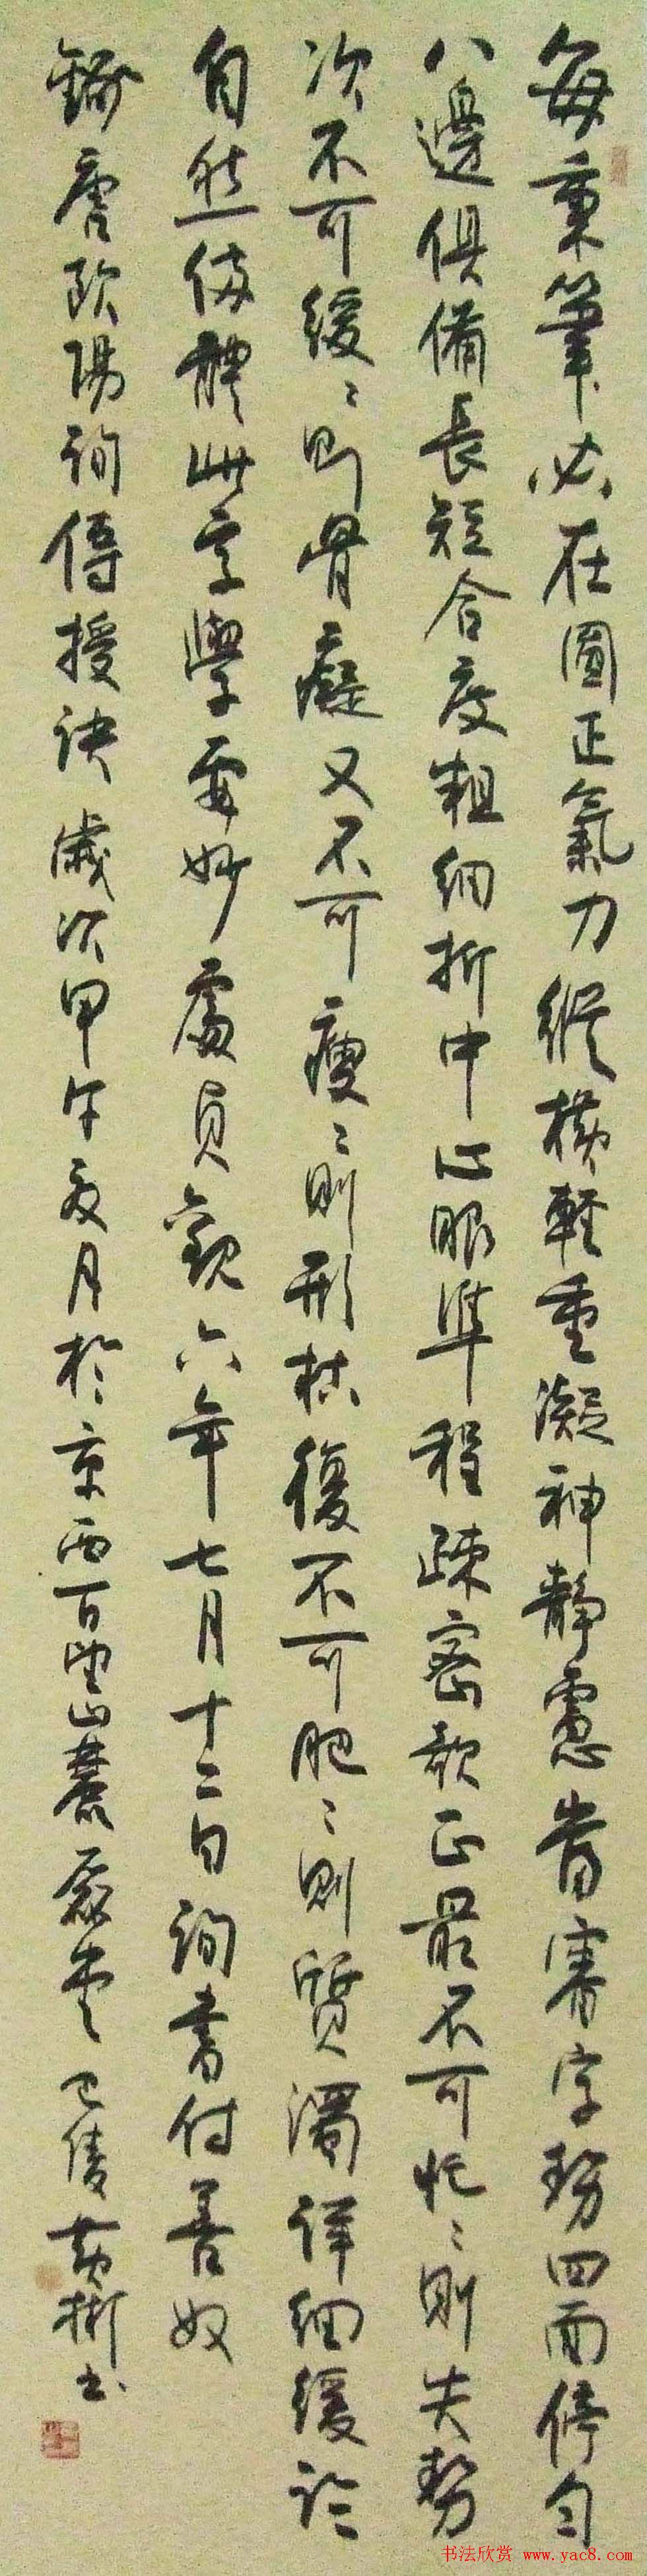 每秉筆必在圓正氣力縱橫輕重凝神靜慮當審字勢四面停勻
八邊俱備長短合度粗細折中心眼準程疎密欹正最不可忙〻則失勢
次不可緩〻則骨癡又不可瘦〻則形枯復不可肥〻則質濁詳細緩詮
自然備體此字學要妙處貞觀六年七月十二日詢書付善奴
錄唐歐陽詢傳授訣歲次甲午夏月於京西百望山麓
書法欣赏 www.yac8.com